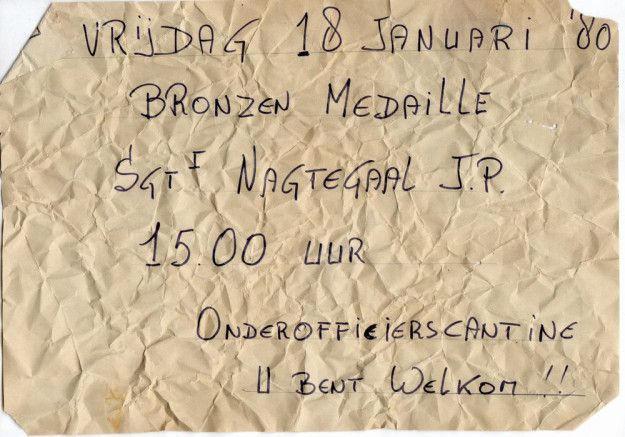 VRIJDAG 18 JANUARI '80
BRONZEN MEDAILLE
SGT I NAGTEGAAL J.P.
15.00 UUR
ONDEROFFICIERSCANTINE
U BENT WELKOM !!